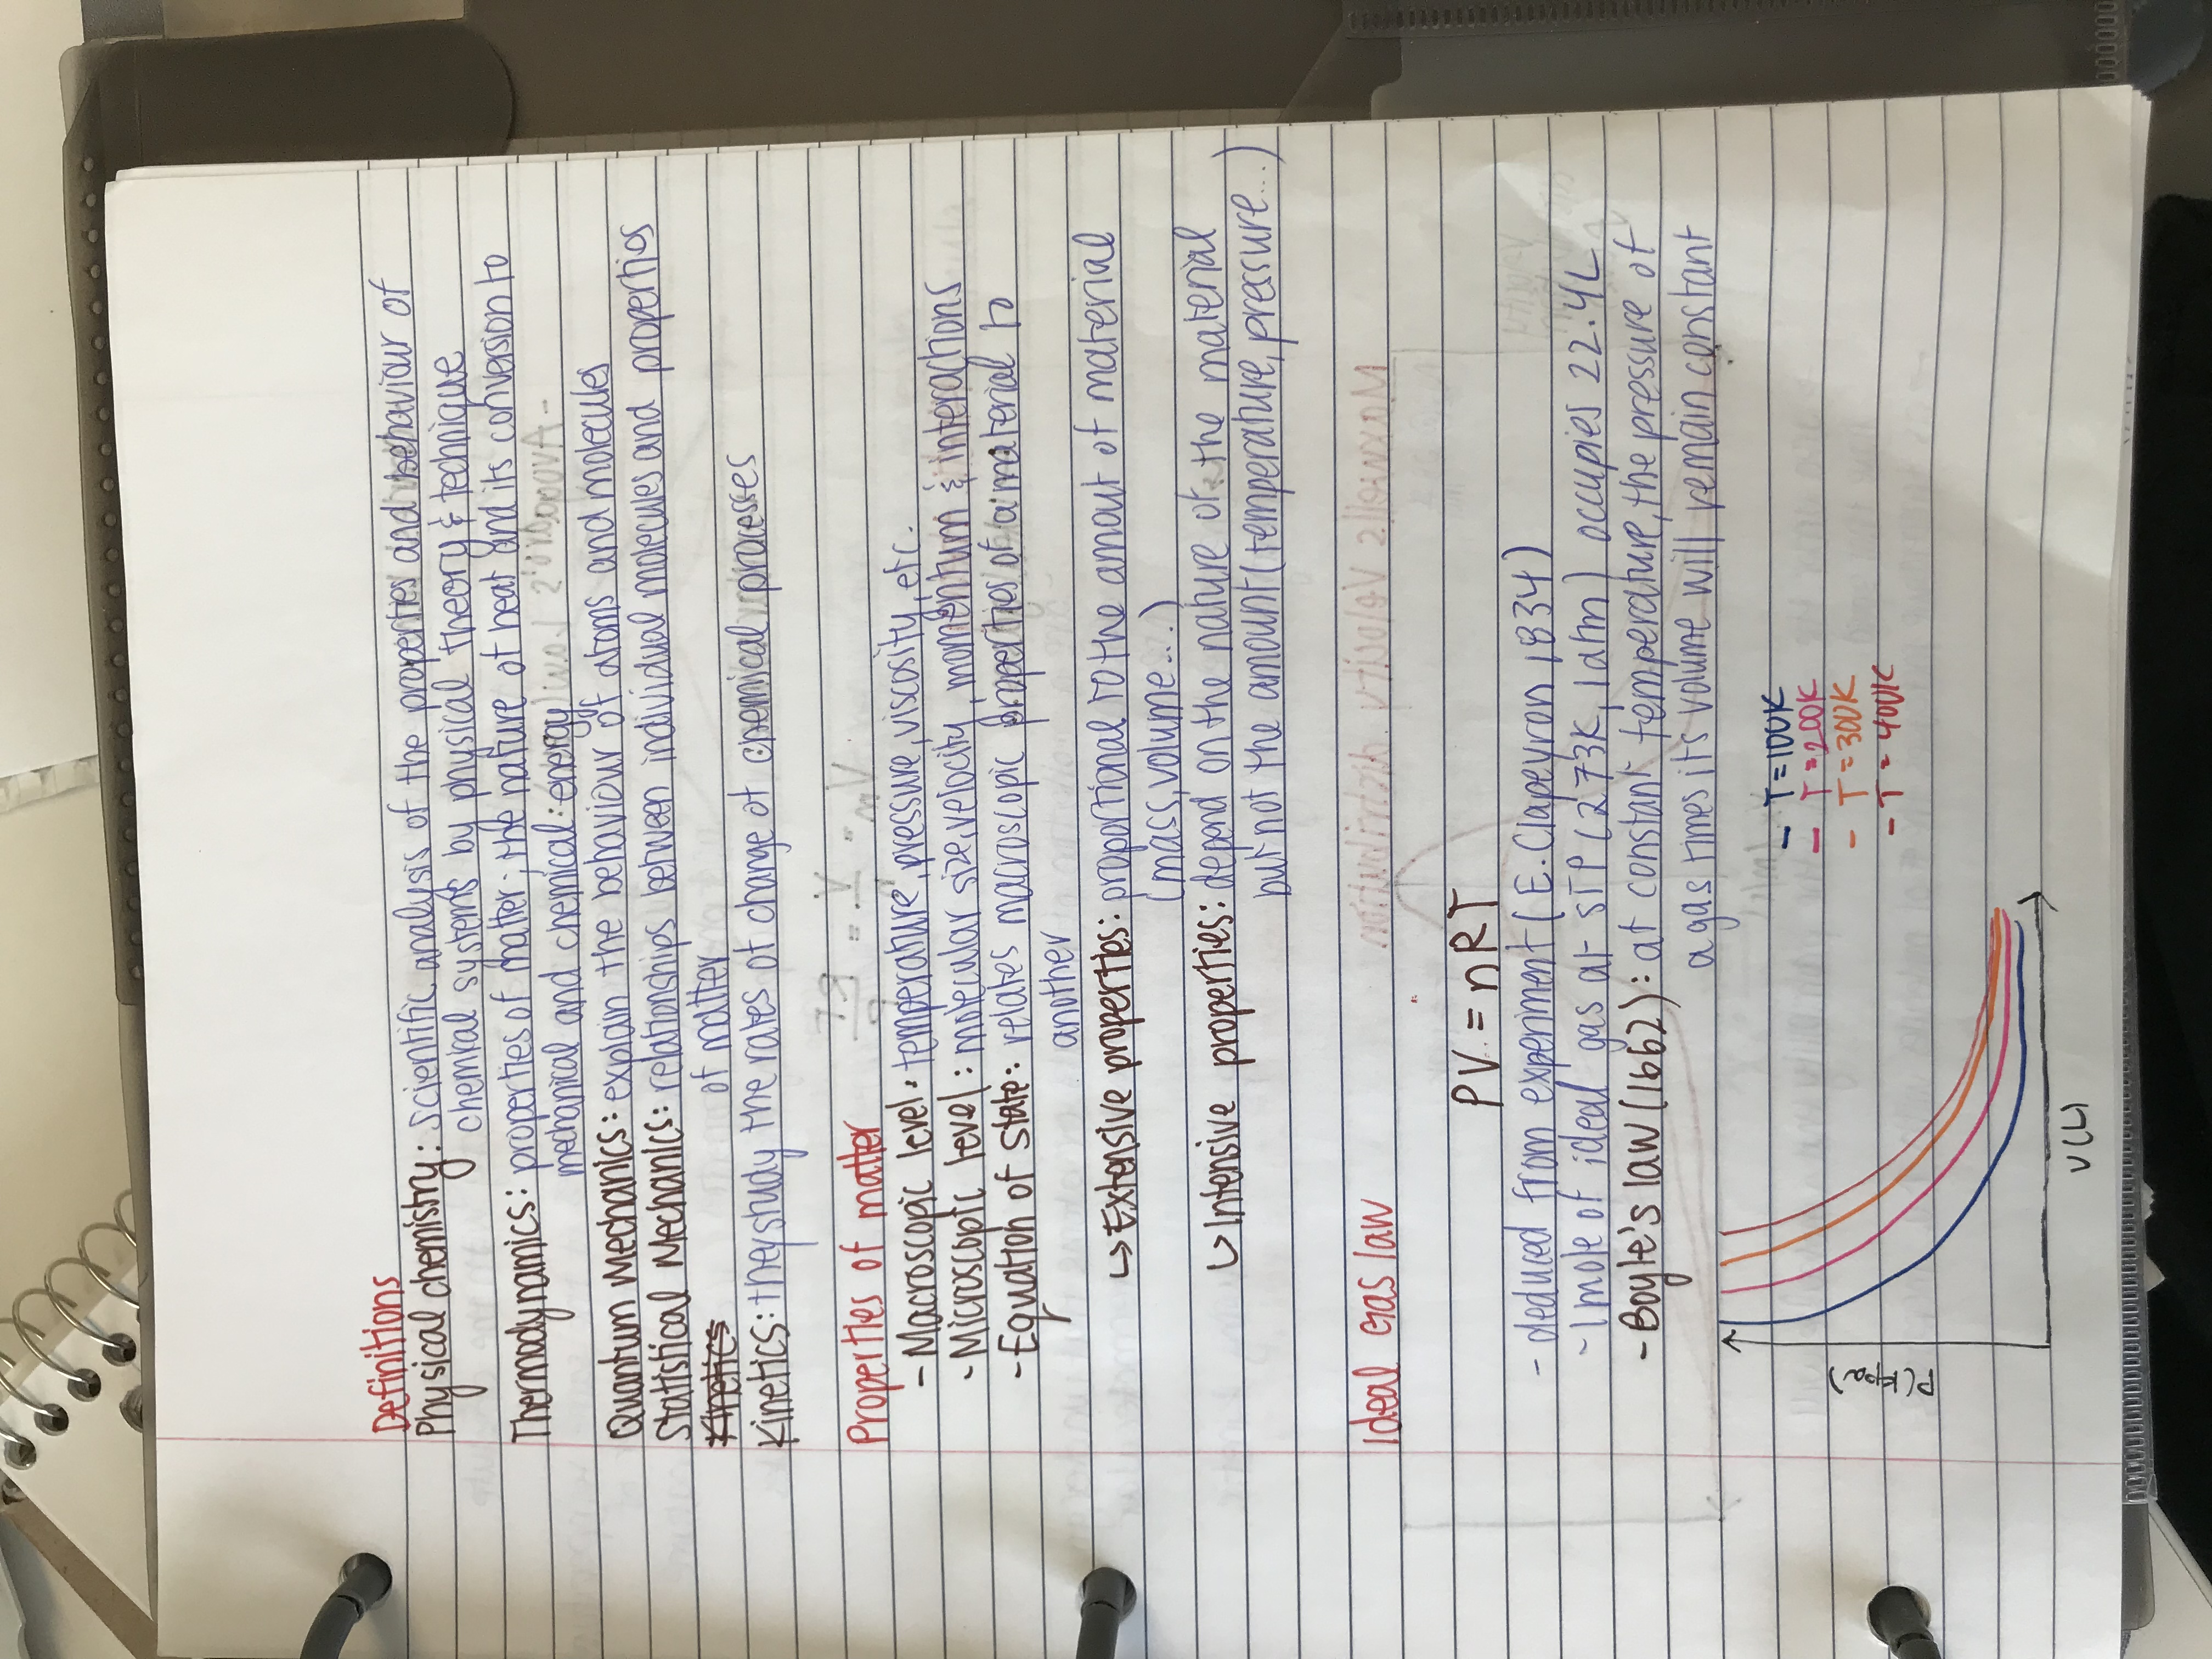 Definitions
Physical chemistry: Scientific analysis of the properties and behaviour of
chemical systems by physical theory & technique
Thermodynamics: properties of matter; the nature of heat and its conversion to
mechanical and chemical energy
Quantum Mechanics: explain the behaviour of atoms and molecules
Statistical Mechanics: relationships between individual molecules and properties
of matter
Kinetics
Kinetics: they study the rates of change of chemical processes
Properties of matter
- Macroscopic level: temperature, pressure, viscosity, etc.
- Microscopic level: molecular size, velocity, momentum & interactions
- Equation of state: relates macroscopic properties of a material to
another
↳ Extensive properties: proportional to the amout of material
(mass, volume...)
↳ Intensive properties: depend on the nature of the material
but not the amount (temperature, pressure...)
Ideal Gas law
PV = nRT
- deduced from experiment (E. Clapeyron 1834)
- 1 mole of ideal gas at STP (273K, 1atm) occupies 22.4L
- Boyle's law (1662): at constant temperature, the pressure of
a gas times its volume will remain constant
- T = 100K
- T = 200K
- T = 300K
- T = 400K
P(Kpa)
V(L)